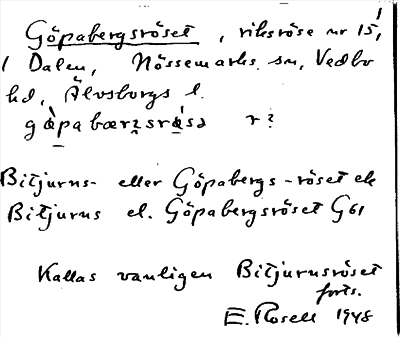 Göpabergsröset, riksröse nr 15,
i Dalen, Nössemarks sn, Vedbo
hd, Älvsborgs l.
göpabærᶎsrösə r?
Bitjurns- eller Göpabergs-röset el
Bitjurns el. Göpabergsröset G61
Kallas vanligen Bitjurnsröset
forts.
E. Rosell 1948